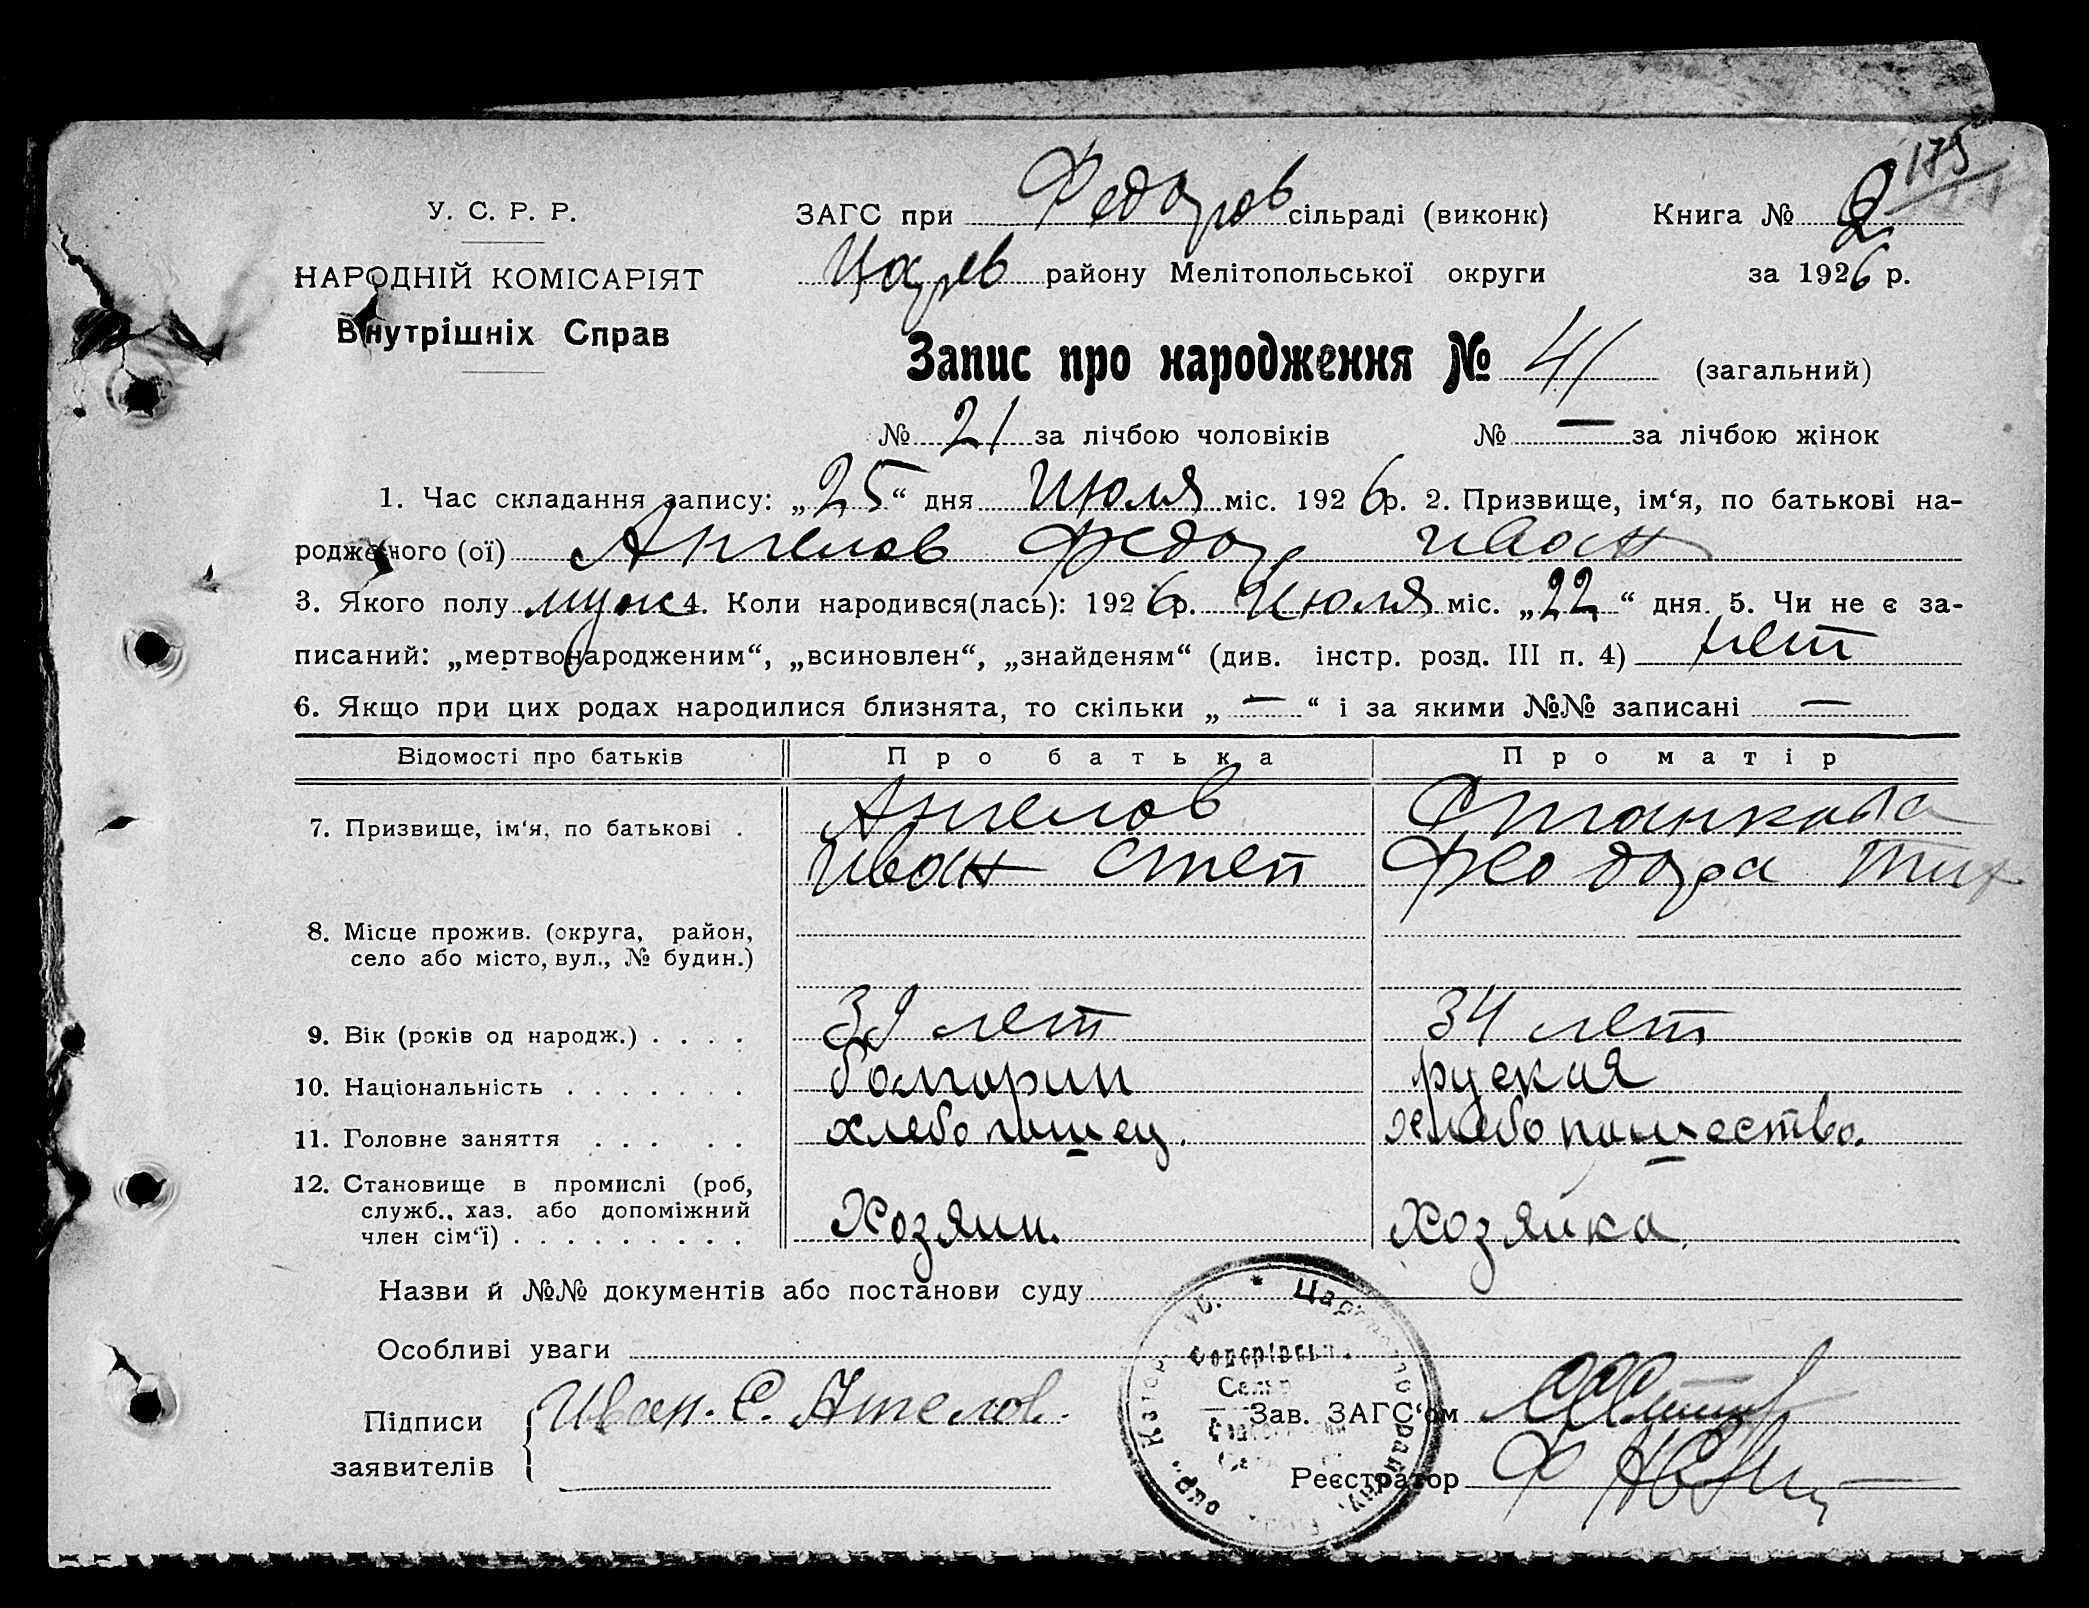 175
У. С. Р. Р.
НАРОДНІЙ КОМІСАРІЯТ
Внутрішніх Справ
ЗАГС при Федоров сільраді (виконк) Книга № 2
Царев району Мелітопольської округи за 1926 р.
Запис про народження № 41 (загальний)
№ 21 за лічбою чоловіків № — за лічбою жінок
1. Час складання запису: „25“ дня Июля міс. 1926 р. 2. Призвище, ім‘я, по батькові на-
родженого (ої) Ангелов Федор Иван
3. Якого полу муж 4. Коли народився(лась): 1926 р. Июля міс. „22“ дня. 5. Чи не є за-
писаний: „мертвонародженим“, „всиновлен“, „знайденям“ (див. інстр. розд. III п. 4) нет
6. Якщо при цих родах народилися близнята, то скільки „—“ і за якими №№ записані —
Відомості про батьків Про батька Про матір
7. Призвище, ім‘я, по батькові . Ангелов Станкова
Иван Степ Феодора Тир
8. Місце прожив. (округа, район,
село або місто, вул., № будин.)
9. Вік (років од народж.) . . . . 39 лет 34 лет
10. Національність . . . . . . . болгорин руская
11. Головне заняття . . . . . хлебопашец. хлебопашество.
12. Становище в промислі (роб,
служб., хаз. або допоміжний
член сім‘ї) . . . . . . . . . Хозяин. хозяйка.
Назви й №№ документів або постанови суду
Особливі уваги
Підписи
заявителів
Иван. С. Ангелов.
Зав. ЗАГС‘ом
Реєстратор